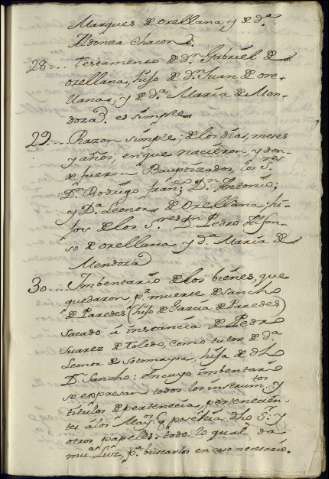 Marques de Orellana, y de Dª
Aldonza Chacon.
28.... Testamento de Dⁿ Gabriel de
Orellana, hijo de Dⁿ Juan de Ore-
llana, y de Dª Maria de Men-
doza. es simple.
29.... Razon simple, de los dias, meses
y años, en que nacieron, y don-
de fueron Baupтizados los S.res
Dⁿ Rodrigo, Juan, Dⁿ Antonio,
y Dª Leonor de Orellana, hi-
jos de los S.res Dⁿ Pedro Alfon-
so de Orellana y Dª Maria de
Mendoza
30.... Imbentario de los bienes, que
quedaron pr muerte de Sancho
de Paredes (hijo de Garcia de Paredes)
sacado á instancia de Pedro
Suarez de Toledo, como tutor de Dª
Leonor de Sotomayor, hija de dho
Dⁿ Sancho: en cuyo imbentario
se expresan todos los instrumtos y
titulos de pertenencia, pertenecien-
tes a los May.gos y dho Sr. y
otros papeles: todo lo qual da
mucha luz pª buscarlos en caso necesario.